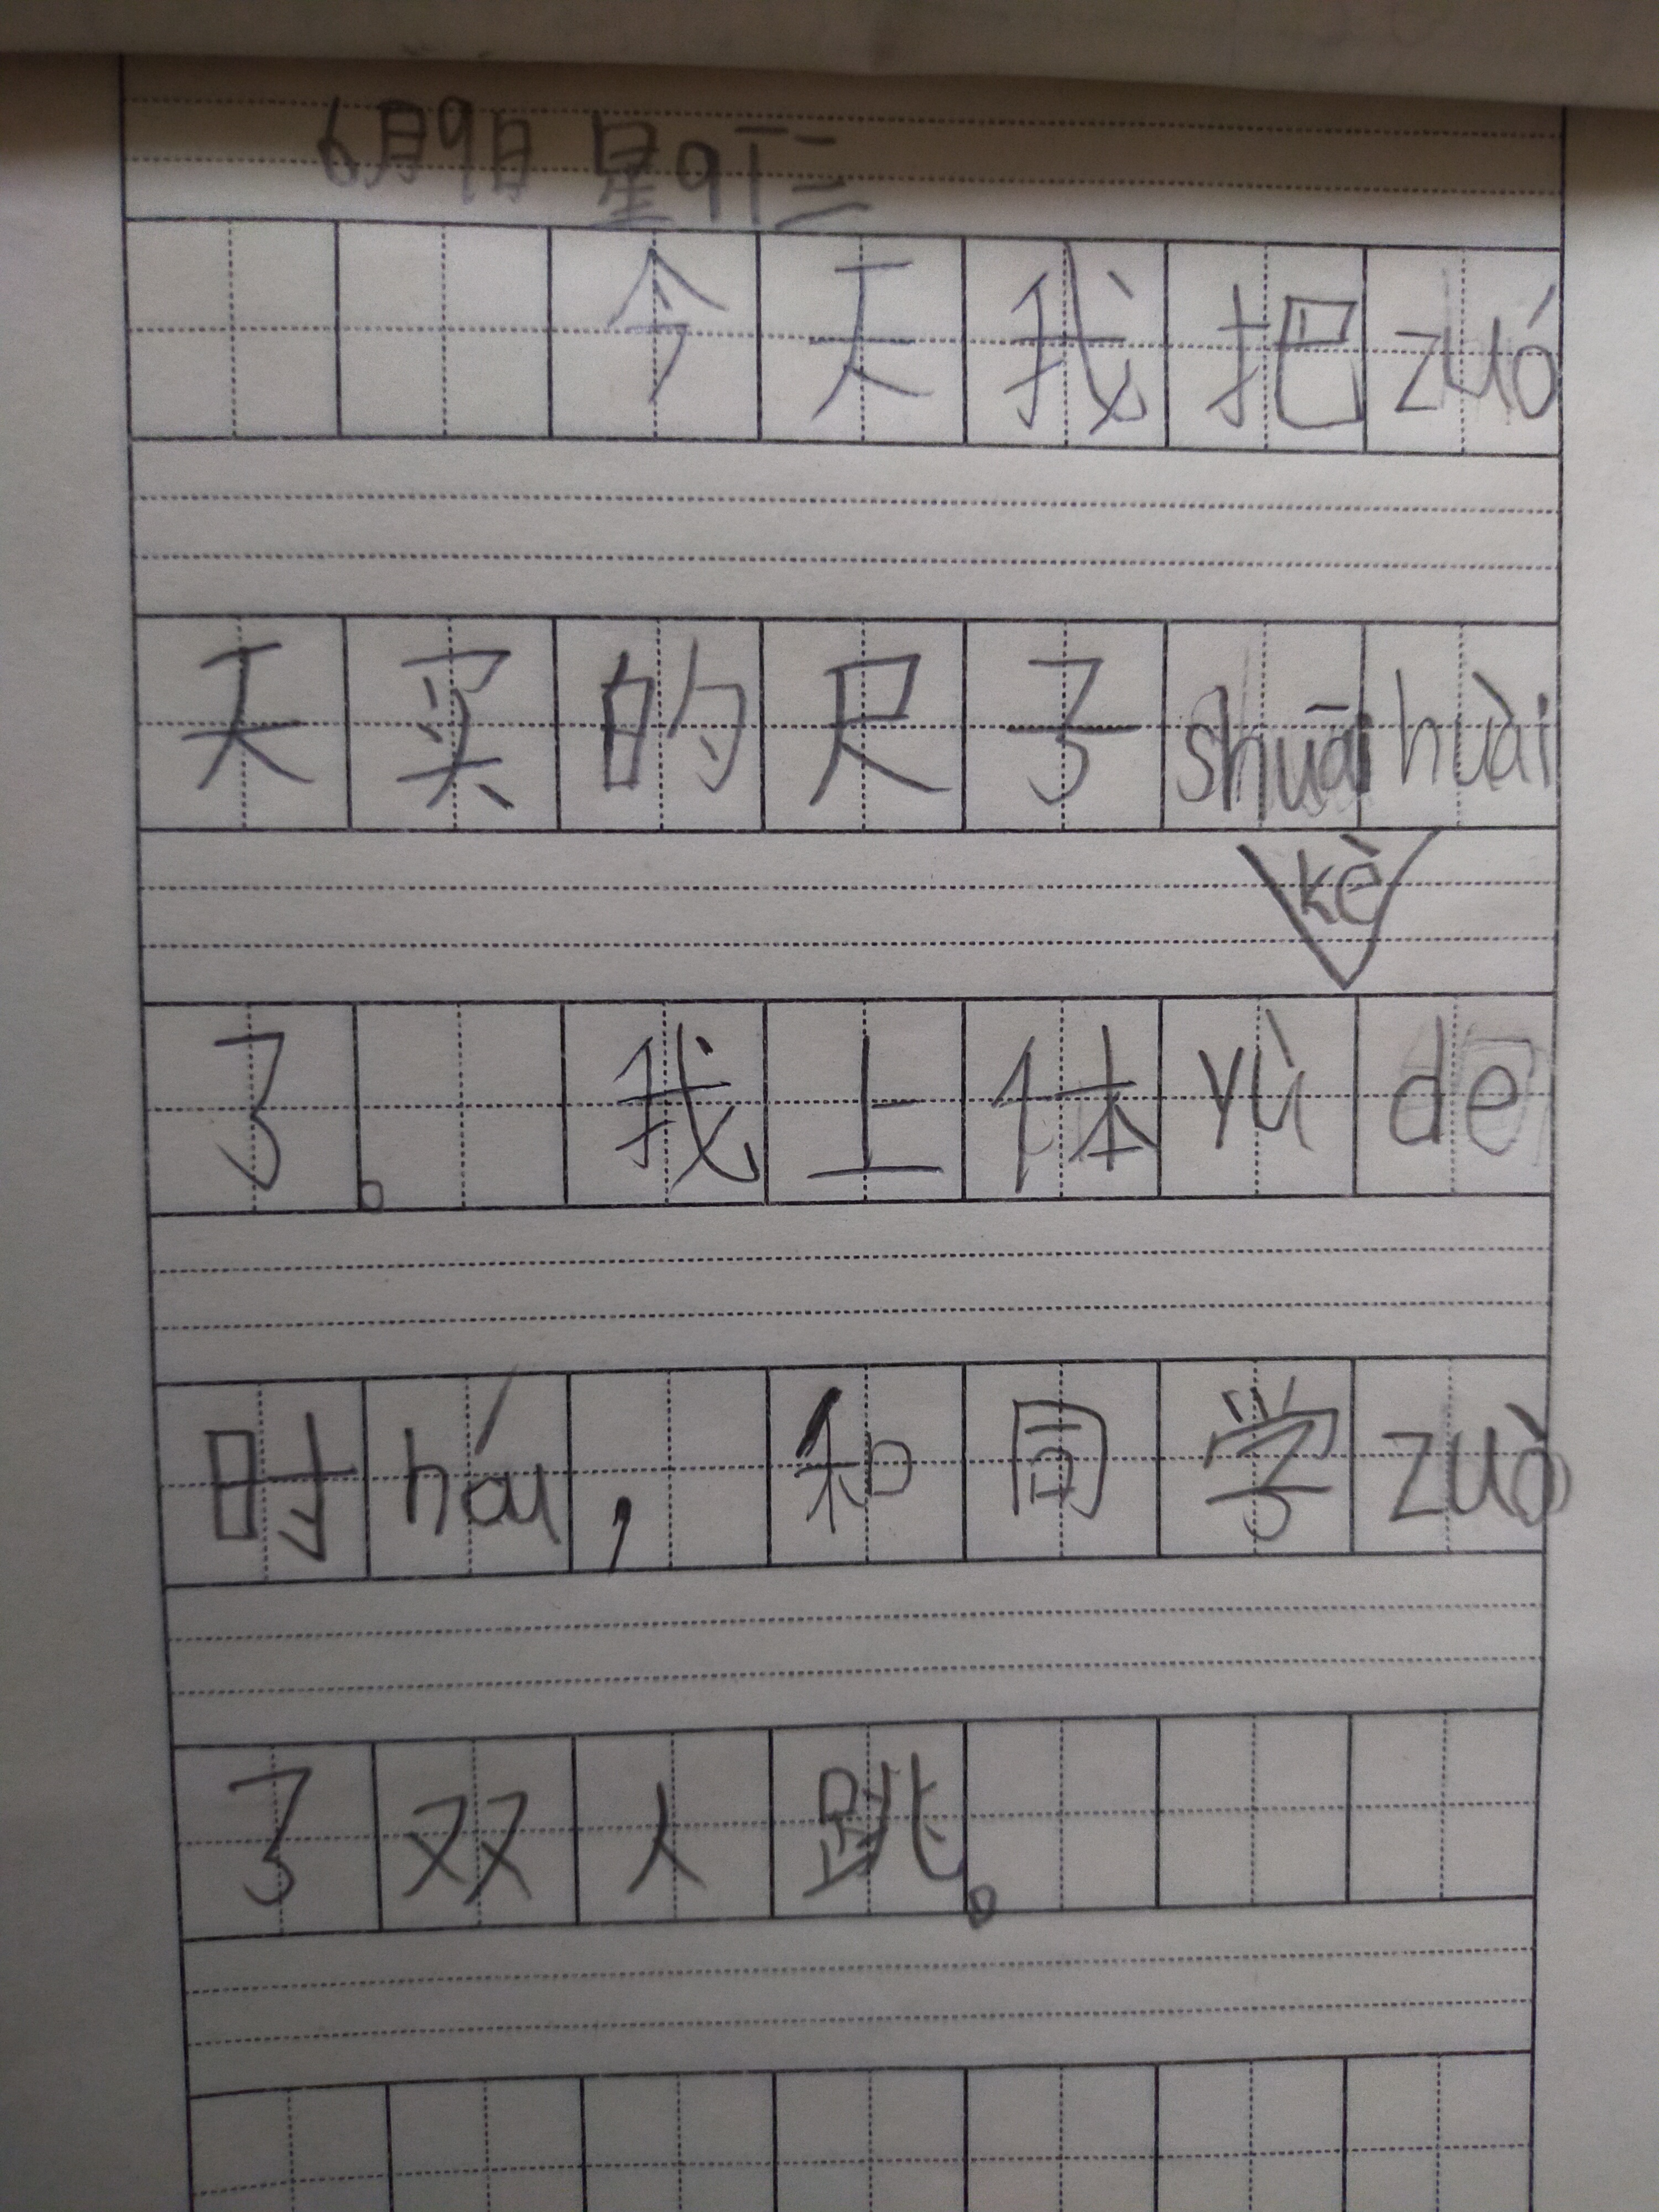 6月9日 星qī三
今天我把zuó
天买的尺子shuāihuài
kè
了。我上体yùde
时háu,和同学zuò
了双人跳。